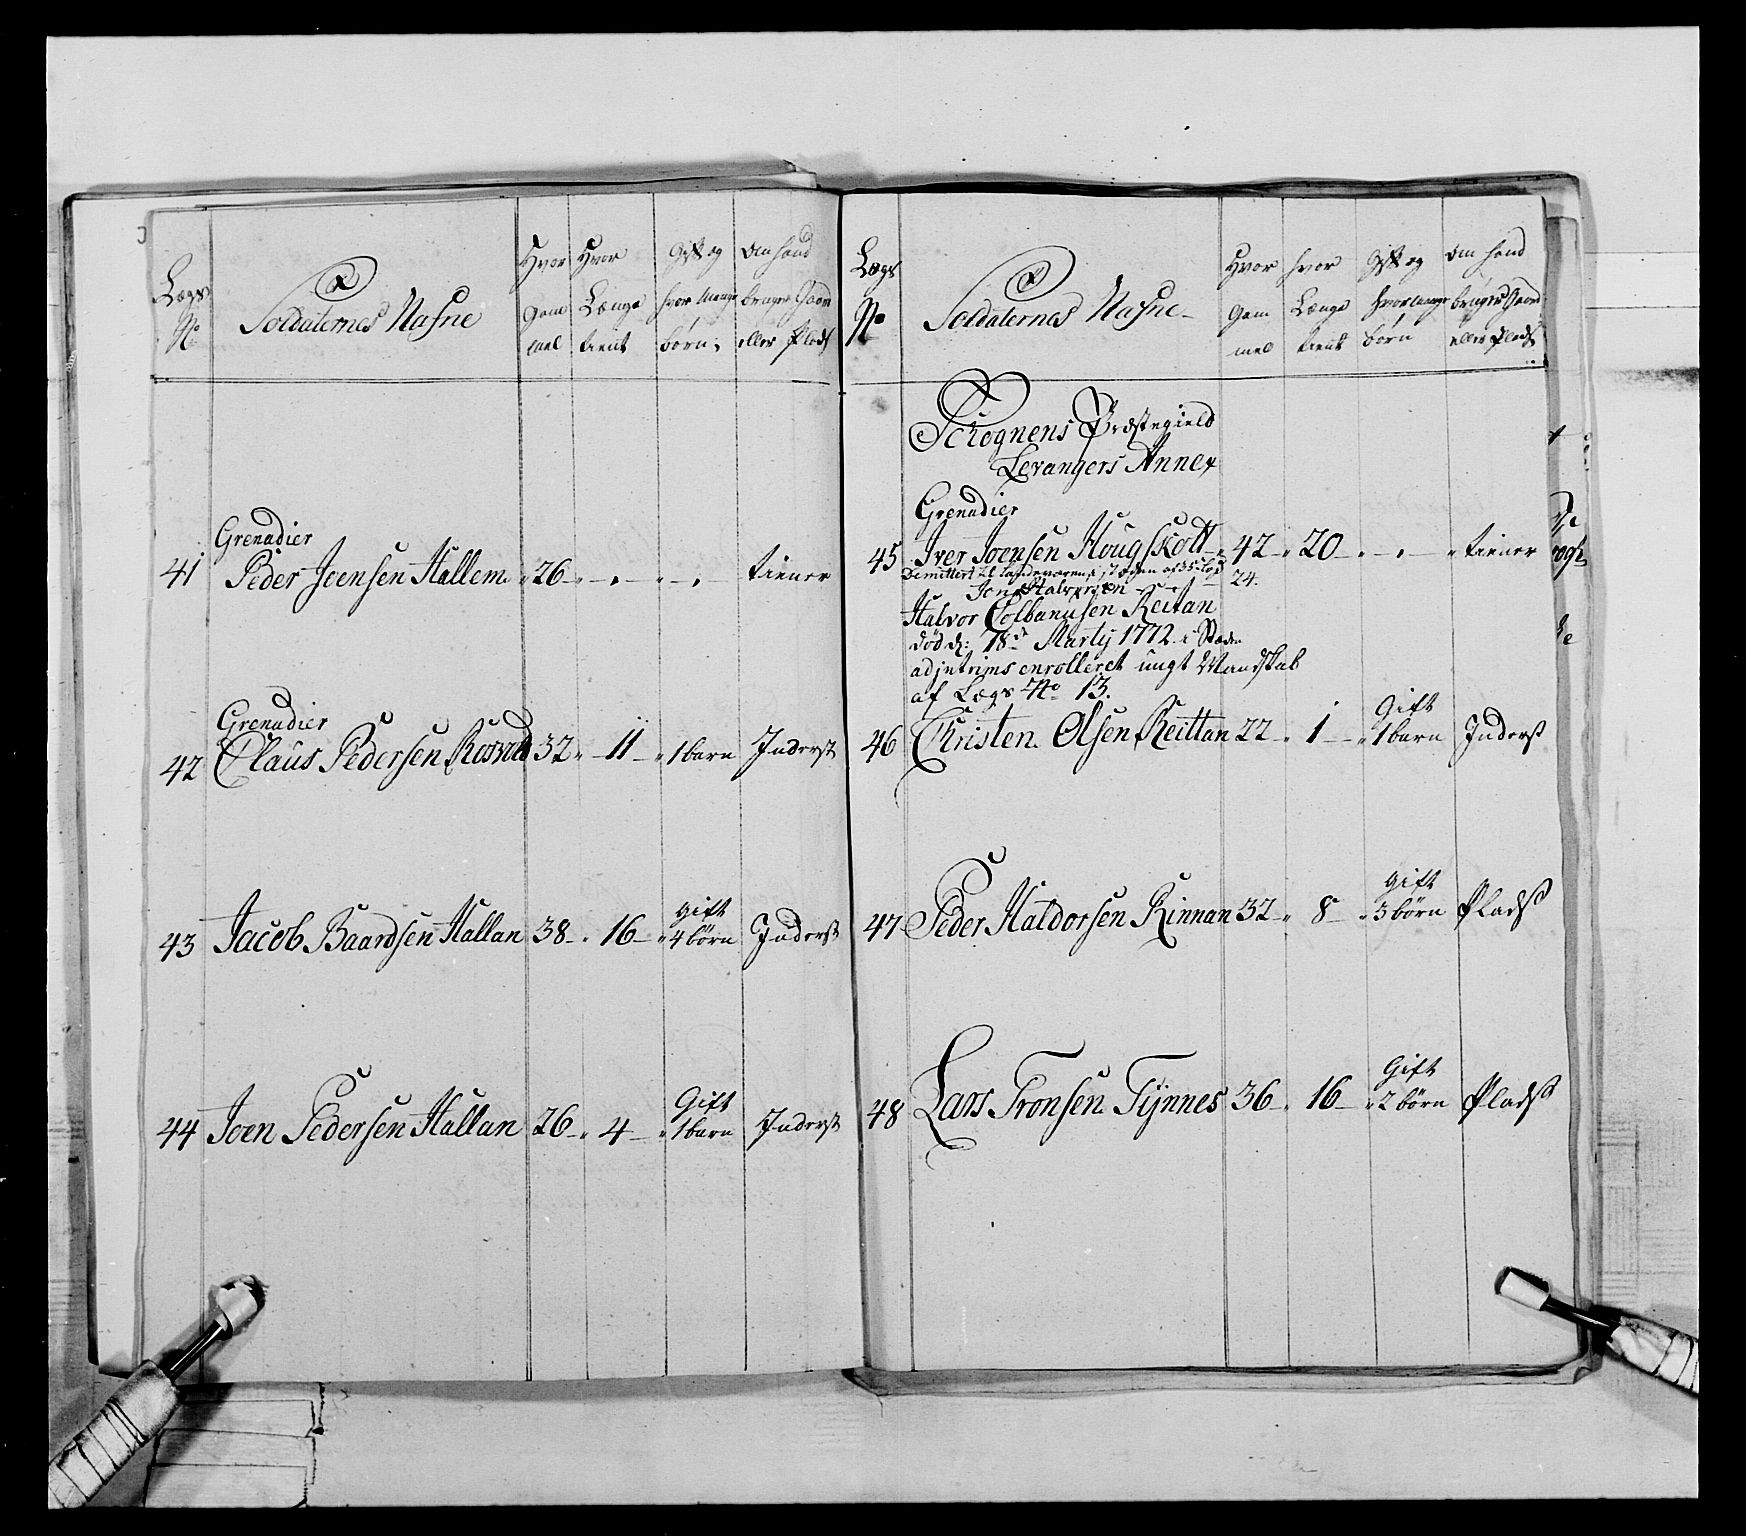 Lægs No
Soldaternes Nafne
Hvor Gammel
Hvor Længe tient
Gift og hvor mange børn,
Om hand bruger Gaard eller Plads
Grenadier
41 Peder Joensen Hallem 26 tiener
Grenadier
42 Claus Pedersen 32 11 1 barn Inderst
Gift
43 Jacob Baardsen Hallan 38 16 4 børn Inderst
Gift
44 Joen Pedersen Hallan 26 4 1 barn Inderst
Lægs No
Soldaternes Nafne
Hvor Gammel
hvor Længe tient
Gift og hvor mange børn
Om hand bruger Gaard eller Plads
Schognens Præstegield
Levangers Annex
Grenadier
45 Iver Joensen Hougskott 42 20 tiener
Dimitteret til Landeværnet, igien af
Jon Halvorsen 24.
Halvor Colbansen Reitan
død d: 18de Martij 1772. i Stæden
enrolleret ungt Mandskab
af Lægs No 13.
Gift
46 Christen Olsen Reittan 22 1 1 barn Inderst
Gift
47 Peder Haldorsen Rinnan 32 8 3 børn Plads
Gift
48 Lars Tronsen Tynnes 36 16 2 børn Plads